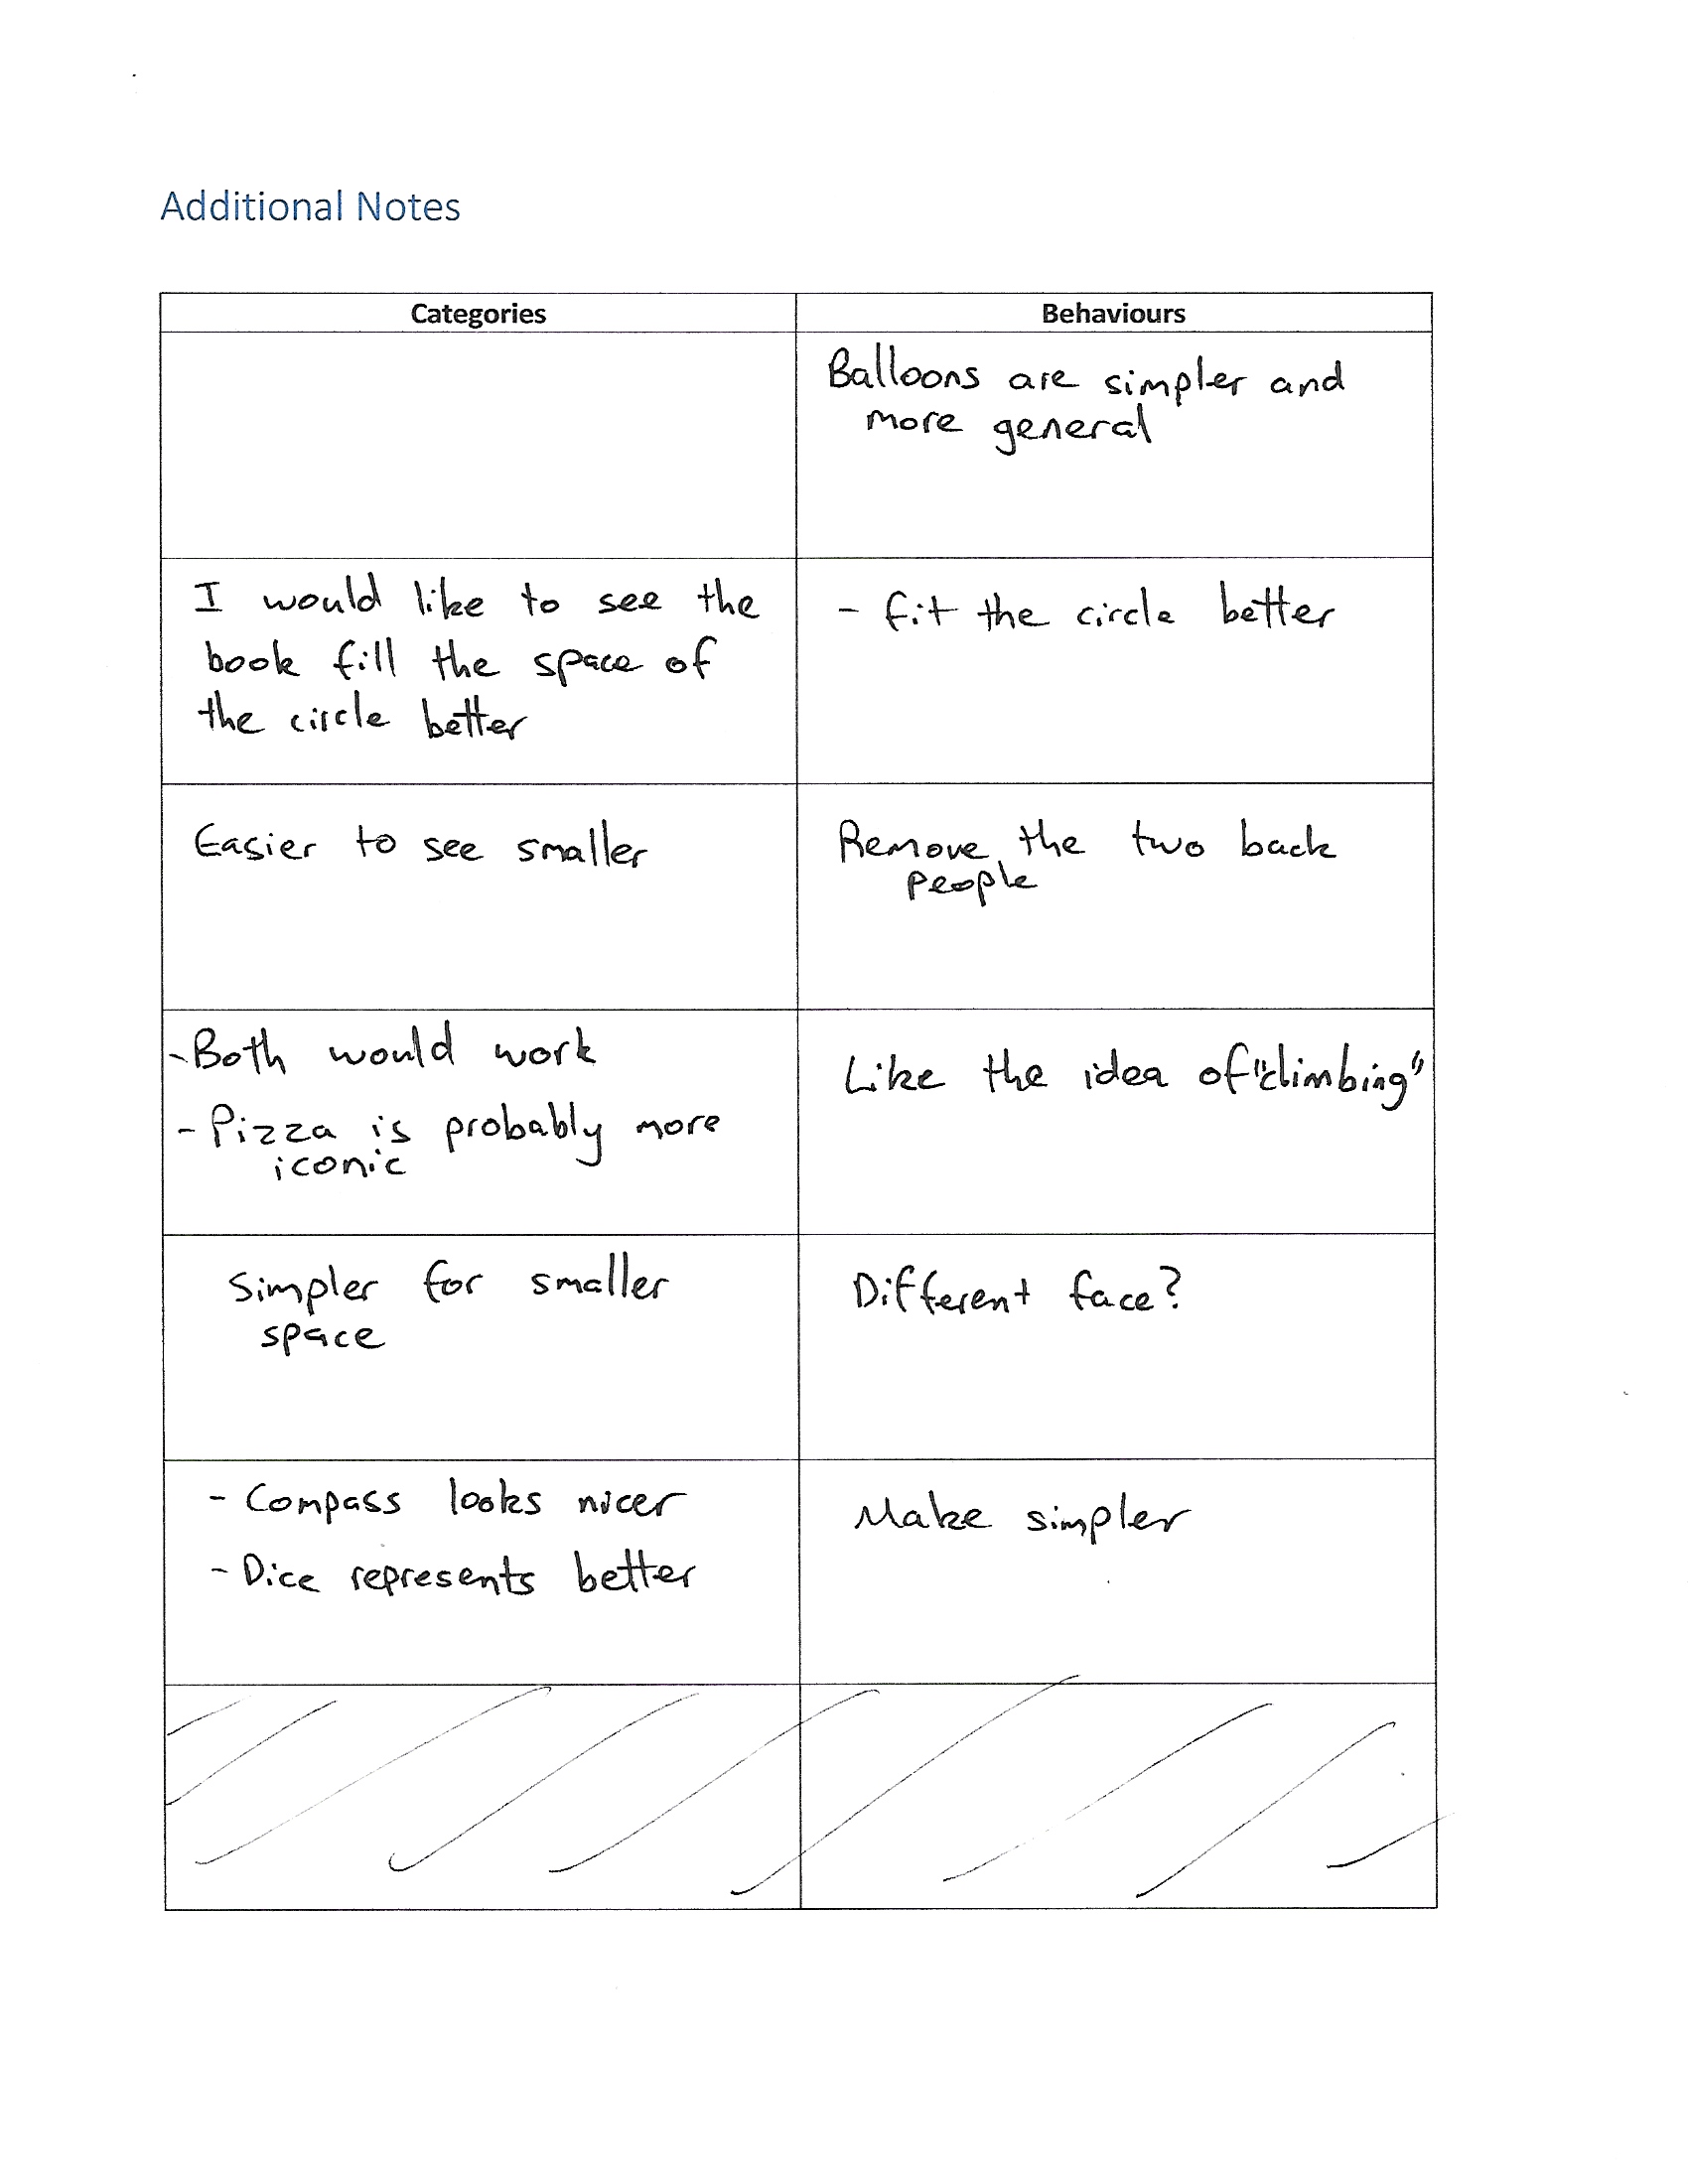 Additional Notes
Categories
Behaviours
Balloons are simpler and
more general
I would like to see the
book fill the space of
the circle better
- fit the circle better
Easier to see smaller
Remove the two back
people
- Both would work
- Pizza is probably more
iconic
Like the idea of "climbing"
Simpler for smaller
space
Different face?
- Compass looks nicer
- Dice represents better
Make simpler